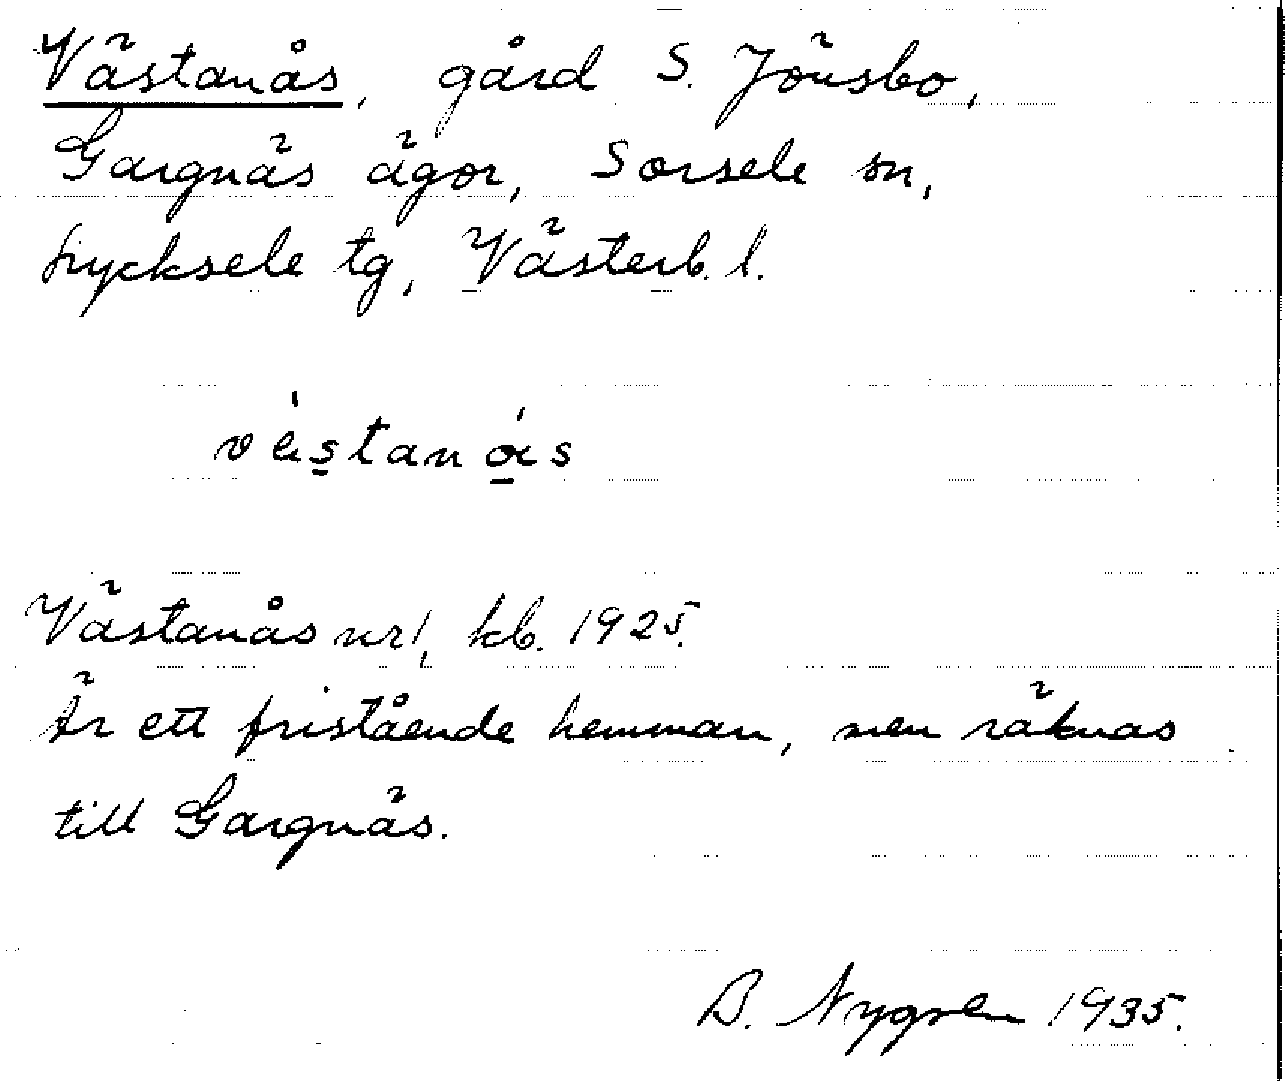 Västanås, gård S. Jönsbo,
Gargnäs ägor, Sorsele sn,
Lycksele tg, Västerb. l.
Västanås nr 1, kb. 1925.
Är ett fristående hemman, men räknas
till Gargnäs.
B. Nygren 1935.